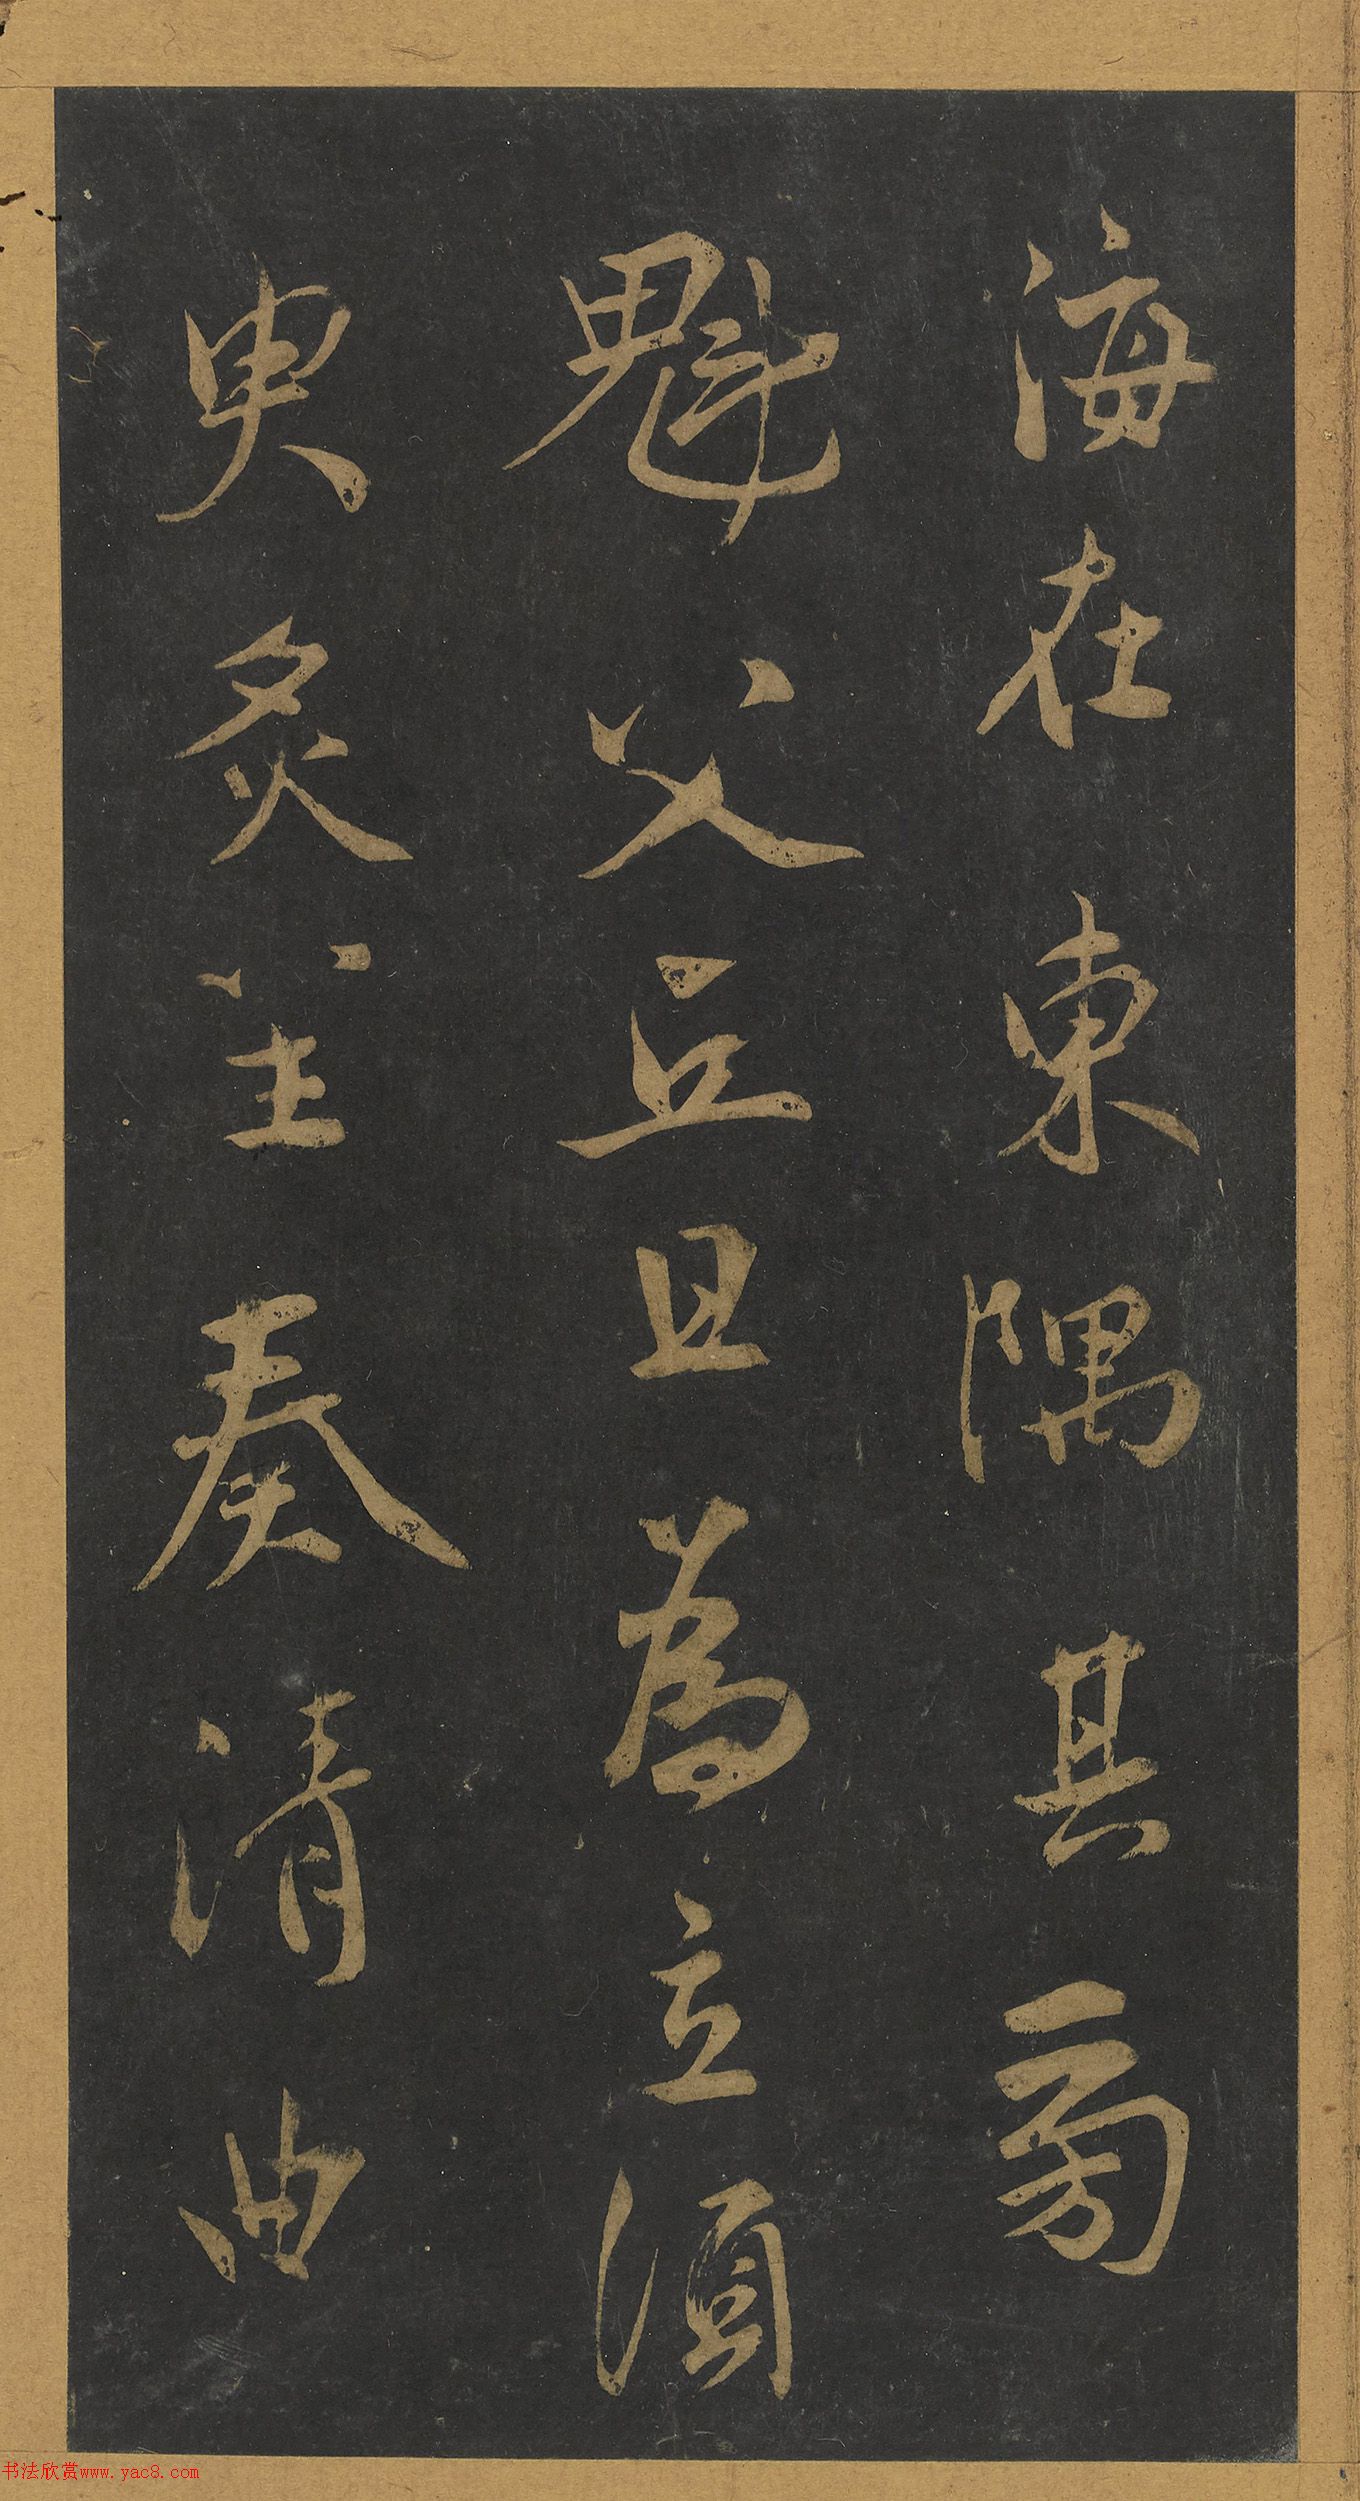 海在東隅其旁
魁父丘且為立須
臾炙笙奏清曲
书法欣赏www.yac8.com